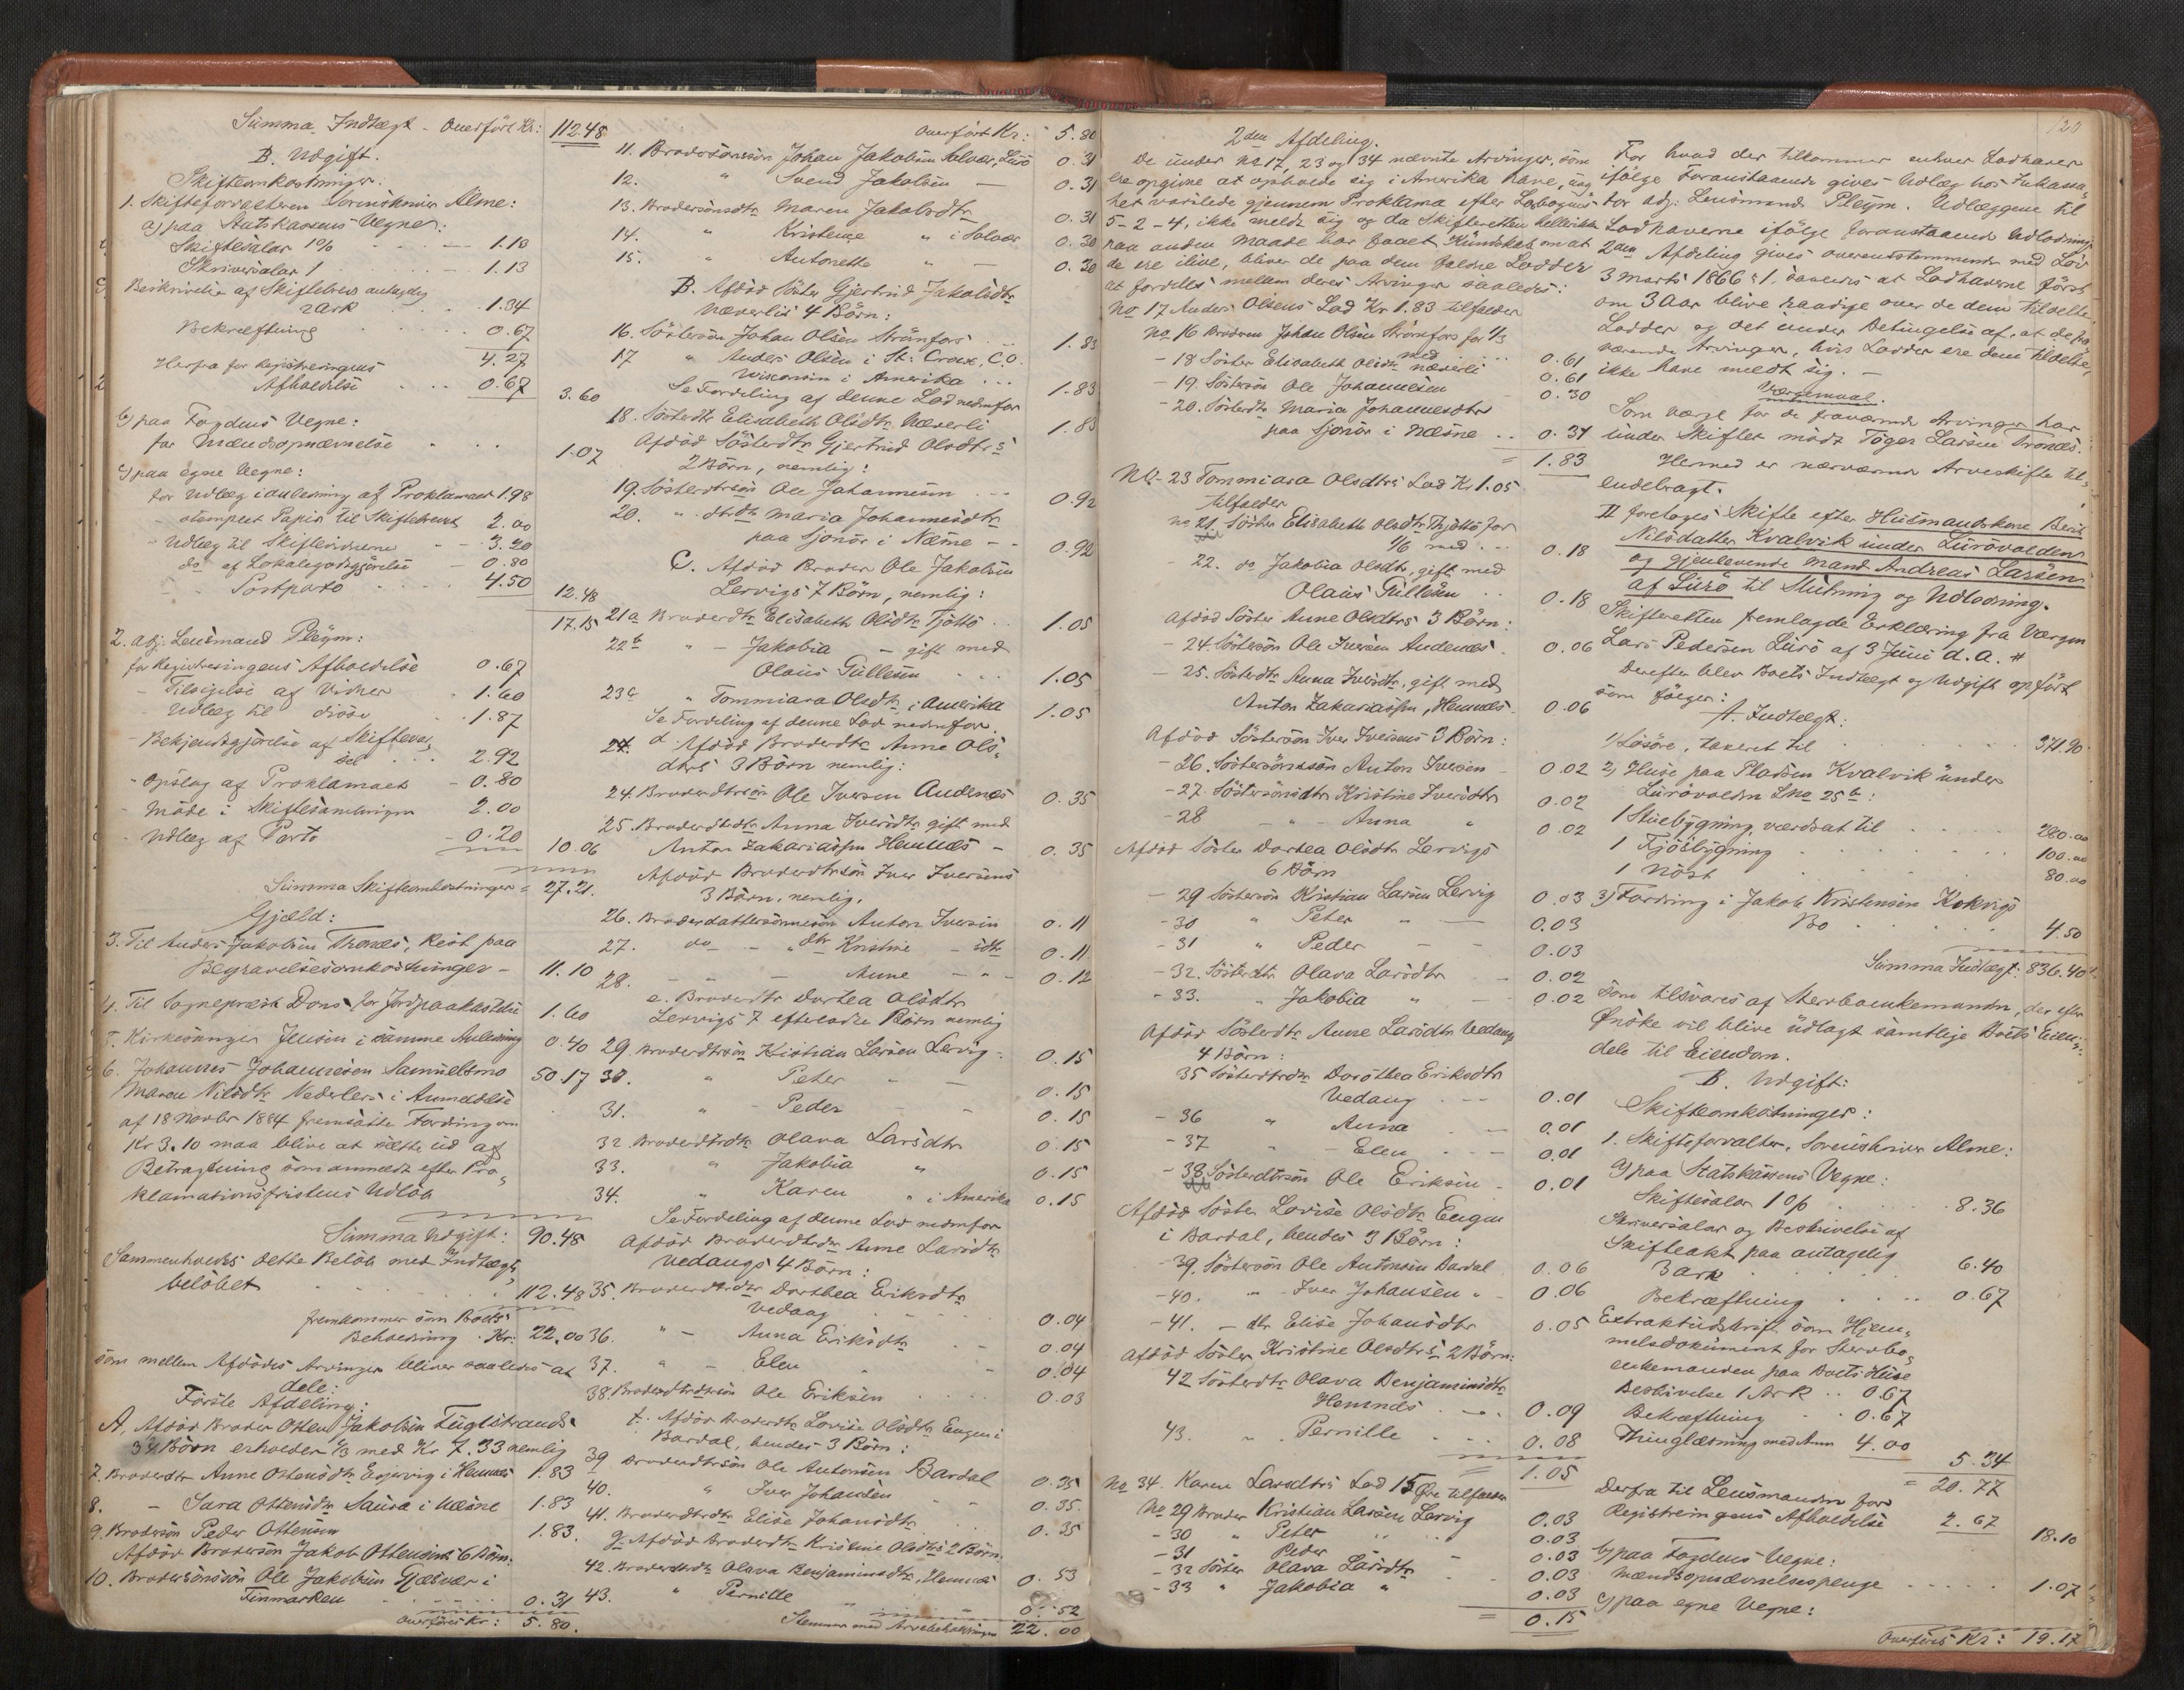 Summa Indtægt - Overført Kr: 112.48
B. Udgift.
Skifteomkostninger.
1. Skifteforvalteren Sorenskriver Alme:
a) paa Statskassens Vegne:
Skiftesalær 1% 1.13
Skriversalær 1 1.13
Beskrivelse af Skiftebrev antagelig
2 Ark 1.34
Bekræftning 0.67
4.27
Herfra for Registreringens
Afholdelse 0.67
3.60
b) paa Fogdens Vegne:
for Mændsopnævnelse 1.07
c) paa egne Vegne:
for Udlæg i anledning af Proklamaet 1.98
- stemplet Papir til Skiftebrevet 2.00
- Udlæg til Skiftevidnerne 3.20
do af Lokalegodtgjørelse 0.80
- Postporto 4.50
12.48
17.15
2. adj. Lensmand Pleym:
for Registreringens Afholdelse 0.67
- Tilsigelse af Vidner 1.60
- Udlæg til disse 1.87
- Bekjendtgjørelse af Skiftevar,,
sel 2.92
- Opslag af Proklamaet 0.80
- Møde i Skiftesamlingen 2.00
- Udlæg af Porto 0.20
10.06
Summa Skifteomkostninger = 27.21.
Gjæld:
3. Til Anders Jakobsen Thonæs, Rest paa
Begravelsesomkostninger - 11.10
4. Til Sogneprest Dons for Jordpaakastelse 1.60
5. Kirkesanger Jensen i samme Anledning 0.40
6. Johannes Johannesen Samuelsmo 50.17
Maren Nilsdtr Nederlers i Anmeldelse
af 18 Novbr 1884 fremsatte Fordring om
Kr 3.10 maa blive at sætte ud af
Betragtning som anmeldt efter Pro,,
klamationsfristens Udløb
Summa Udgift: 90.48
Sammenholdes dette Beløb med Indtægts,,
beløbet 112.48
fremkommer som Boets
Beholdning Kr: 22.00
som mellem Afdødes Arvinger bliver saaledes at
dele:
Første Afdeling:
A, Afdød Broder Otten Jakobsen Fuglstrands
34 Børn erholder 1/3 med Kr 7.33 nemlig
7. Broderdtr Anne Ottensdtr i Hemnæs 1.83
8. - Sara Ottensdtr Saura i Næsne 1.83
9. Brodersøn Peder Ottensen 1.83.
Afdød Brodersøn Jakob Ottensens 6 Børn.
10. Brodersønssøn Ole Jakobsen Gjæsvær i
Finmarken 0.31
Overføres Kr: 5.80.
Overført Kr: 5.80
11. Brodersønssøn Johan Jakobsen Solvær, Lurø 0.31
12. " Svend Jakobsen — 0.31
13. Brodersønsdtr Maren Jakobsdtr 0.31
14. " Kristense " i Solvær 0.30
15. " Antonette " — 0.30
B. Afdød Søster Gjertrud Jakobsdtr
Næverlis 4 Børn:
16. Søstersøn Johan Olsen Strømfors 1.83
17 " Anders Olsen i St: Croix, C.O.
Wisconsin i Amerika 1.83
Se Fordeling af denne Lod nedenfor
18. Søsterdtr Elisabeth Olsdtr Næverli 1.83
Afdød Søsterdtr Gjertrud Olsdtrs
2 Børn, nemlig:
19. Søsterdtrsøn Ole Johannesen 0.92
20. " dtrdtr Maria Johannesdtr
paa Sjonør i Næsne 0.92
C. Afdød Broder Ole Jakobsen
Lervigs 7 Børn, nemlig:
21a Broderdtr Elisabeth Olsdtr Tjøttø 1.05
22b " - Jakobia - gift med
Olaus Tullesen 1.05
23c " Tommiara Olsdtr i Amerika 1.05
Se Fordeling af denne Lod nedenfor
24. d Afdød Broderdtr Anne Ols,,
dtrs 3 Børn nemlig:
24. Broderdtrsøn Ole Iversen Andenæs 0.35
25. Broderdtrdtr Anna Iversdtr gift med
Anton Zakariassen Hemnæs - 0.35
Afdød Broderdtrsøn Iver Iversens
3 Børn, nemlig.
26. Broderdattersønnesøn Anton Iversen 0.11
27. do - " dtr Kristine - sdtr 0.11
28. " - Anne - " - 0.12
e. Broderdtr Dortea Olsdtr
Lervigs 7 efterladte Børn nemlig
29 Broderdtrsøn Kristian Larsen Lervig 0.15
30. " Peter " — 0.15
31. " Peder - - 0.15
32 Broderdtrdtr Olava Larsdtr 0.15
33. " Jakobia " 0.15
34. " Karen " i Amerika 0.15
Se Fordeling af denne Lod nedenfor
Afdød Broderdtrdtr Anne Larsdtr
Vedaugs 4 Børn:
35. Broderdtrdtr Dorthea Eriksdtr
Vedaag 0.04
36. " - Anna Eriksdtr 0.04
37. " - Elen " 0.04
38. Broderdtrdtrsøn Ole Eriksen 0.03
f. Afdød Broderdtr Lovise Olsdtr Eugen i
Bardal, hendes 3 Børn:
39 Broderdtrsøn Ole Antonsen Bardal 0.35
40. " Iver Johansen 0.35.
41. Broderdtrdtr Elise Johansdtr 0.35
g. Afdød Broderdtr Kristine Olsdtrs 2 Børn.
42. Broderdtrdtr Olava Benjaminsdtr, Hemnæs 0.53
43. " Pernille 0.52
Stemmer med Arvebeholdningen 22.00
2den Afdeling.
De under No 17, 23 og 34 nævnte Arvinger, som
ere opgivne at opholde sig i Amerika have, uag,,
tet varslede gjennem Proklama efter Lovbogens
5-2-4, ikke meldt sig og da Skifteretten hellerikke
paa anden Maade har faaet Kundskab om at
de ere ilive, bliver de paa dem faldne Lodder
at fordeles mellem deres Arvinger saaledes:
No 17 Anders Olsens Lod Kr 1.83 tilfalder
No 16 Broderen Johan Olsen Strømfors for 1/3
med 0.61
- 18 Søster Elisabeth Olsdtr Næverli 0.61
- 19. Søstersøn Ole Johannesen 0.30
- 20. Søsterdtr Maria Johannesdtr
paa Sjonør i Næsne 0.31
= 1.83
No 23 Tommiara Olsdtrs Lod Kr 1.05
tilfalder
no 21. Søster Elisabeth Olsdtr Tjøttø for
1/6 med 0.18
- 22. do Jakobia Olsdtr, gift med
Olaus Tullesen 0.18
Afdød Søster Anne Olsdtrs 3 Børn:
- 24 Søstersøn Ole Iversen Andenæs 0.06
- 25. Søsterdtr Anna Iversdtr, gift med
Anton Zakariassen, Hemnæs 0.06
Afdød Søstersøn Iver Iversens 3 Børn:
- 26. Søstersønssøn Anton Iversen 0.02
- 27. Søstersønsdtr Kristine Iversdtr 0.02
- 28 - " - Anna " 0.02
Afdød Søster Dortea Olsdtr Lervigs
6 Børn
- 29 Søstersøn Kristian Larsen Lervig 0.03
- 30 " Peter " — 0.03
- 31 " Peder - - 0.03
- 32. Søsterdtr Olava Larsdtr 0.02
- 33. " Jakobia " 0.02
Afdød Søsterdtr Anne Larsdtr Vedaug
4 Børn:
35 Søsterdtrdtr Dorothea Eriksdtr
Vedaug 0.01
- 36 " Anna 0.01
- 37 - Elen 0.01
- 38 Søsterdtrsøn Ole Eriksen 0.01
Afdød Søster Lovise Olsdtr Eugen
i Bardal, hendes 3 Børn:
- 39. Søstersøn Ole Antonsen Bardal 0.06
- 40. " - Iver Johansen " 0.06
- 41. - dtr Elise Johansdtr 0.05
Afdød Søster Kristine Olsdtrs 2 Børn:
42 Søsterdtr Olava Benjaminsdtr
Hemnæs 0.09
43. " Pernille 0.08
= 1.05
No 34. Karen Larsdtrs Lod 15 Øre tilfalder
No 29 Broder Kristian Larsen Lervig 0.03
- 30 " Peter 0.03
- 31 " Peder 0.03
- 32 Søster Olava Larsdtr 0.03
- 33 " Jakobia " 0.03
= 0.15
120
For hvad der tilkommer enhver Lodhaver
ifølge Foranstaaende gives Udlæg hos Inkassa,,
tor adj: Lensmand Pleym. Udlæggene til
Lodhaverne ifølge foranstaaende Udlodnings
2den Afdeling gives overensstemmende med Lov
3 Marts 1866 § 1, saaledes at Lodhaverne først
om 3 Aar blive raadige over de dem tildelte
Lodder og det under Betingelse af, at de fra,,
værende Arvinger, hvis Lodder ere dem tildelte,
ikke have meldt sig. -
Værgemaal.
Som værge for de fraværende Arvinger har
under Skiftet mødt Tøger Larsen Tronæs.
Hermed er nærværende Arveskifte til,,
endebragt.
II foretoges Skifte efter Husmandskone Berit
Nilsdatter Kvalvik under Lurøvolden
og gjenlevende Mand Andreas Larsen
af Lurø til Slutning og Udlodning.
Skifteretten fremlagde Erklæring fra Værgen
Lars Pedersen Lurø af 3 Juni d. A. #
Derefter blev Boets Indtægt og Udgift opført
som følger:
A. Indtægt:
1) Løsøre, taxeret til 371.90
2) Huse paa Pladsen Kvalvik under
Lurøvolden Lno 25b:
1 Stuebygning, værdsat til 280.00
1 Fjøsbygning 100.00
1 Nøst 80.00
3) Fordring i Jakob Kristensen Kokvigs
Bo 4.50
Summa Indtægt: 836.40
som tilsvares af Stervboenkemanden, der efter
Ønske vil blive udlagt samtlige Boets Eien,,
dele til Eiendom.
B. Udgift:
Skifteomkostninger:
1. Skifteforvalter, Sorenskriver Alme:
a) paa Statskassens Vegne:
Skiftesalær 1 0/0 8.36
Skriversalær og Beskrivelse af
Skifteakt paa antagelig
3 Ark 6.40
Bekræftning 0.67
Extraktudskrift som Hjem,,
melsdokument for Stervbo,,
enkemanden paa Boets Huse
Beskrivelse 1 Ark 0.67
Bekræftning 0.67
Thinglæsning med Ann 4.00
5.34
= 20.77
Derfra til Lensmanden for
Registreringens Afholdelse 2.67
18.10
b) paa Fogdens Vegne:
Mændsopnævnelsespenge 1.07
c) paa egne Vegne:
Overføres Kr: 19.17